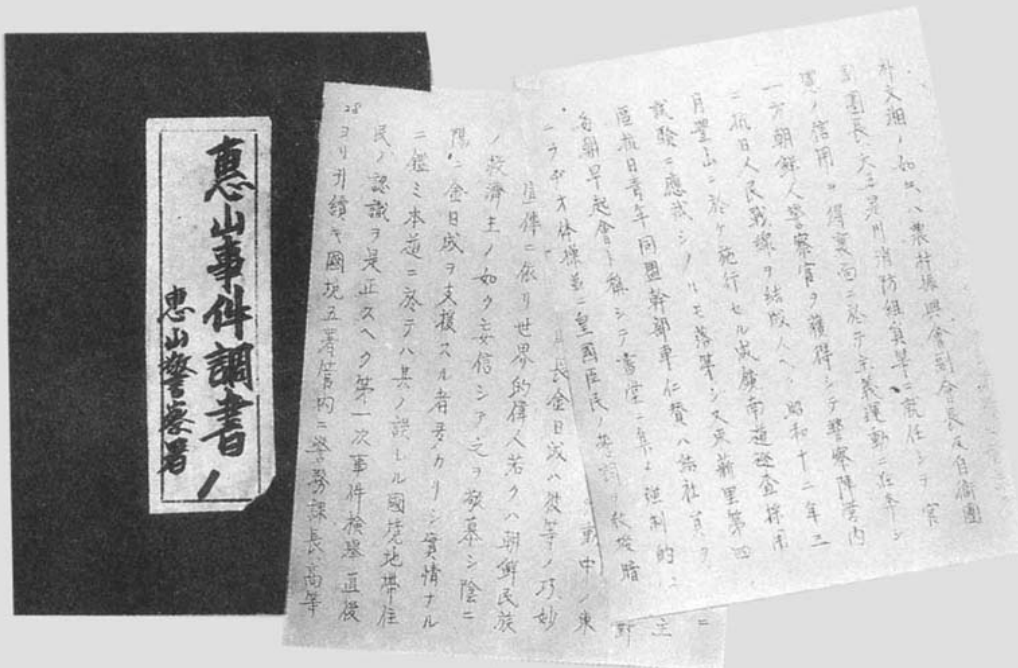 惠山事件調書ノ
惠山警察署
朴文湘ノ如キハ農村振興會副會長及自衛團
副團長、消防組員等ニ就任シテ官
憲ノ信用ヲ得裏面ニ於テ主義運動ニ狂奔シ
一方朝鮮人警察官ヲ獲得シテ警察陣営内
ニ抗日人民戦線ヲ結成スヘク昭和十二年三
月豊山ニ於ケ施行セル咸鏡南道巡査採用
試験ニ應試シノルモ落第シ又東新里第四
區抗日青年同盟幹部車仁賛ハ結社員ヲ
毎朝早起會ト稱シテ書堂ニ集メ強制的ニ
ラヂオ体操並ニ皇國臣民ノ誓詞ノ
長金日成ハ彼等ノ巧妙
宣傳ニ依リ世界的偉人若クハ朝鮮民族
ノ救濟主ノ如ク妄信シテ之ヲ敬慕シ陰ニ
陽ニ金日成ヲ支援スル者多カリシ實情ナル
ニ鑑ミ本道ニ於テハ其ノ誤レル國境地帯住
民ノ認識ヲ是正スヘク第一次事件檢擧直後
ヨリ引續キ國境五署管内ニ警務課長、高等
28